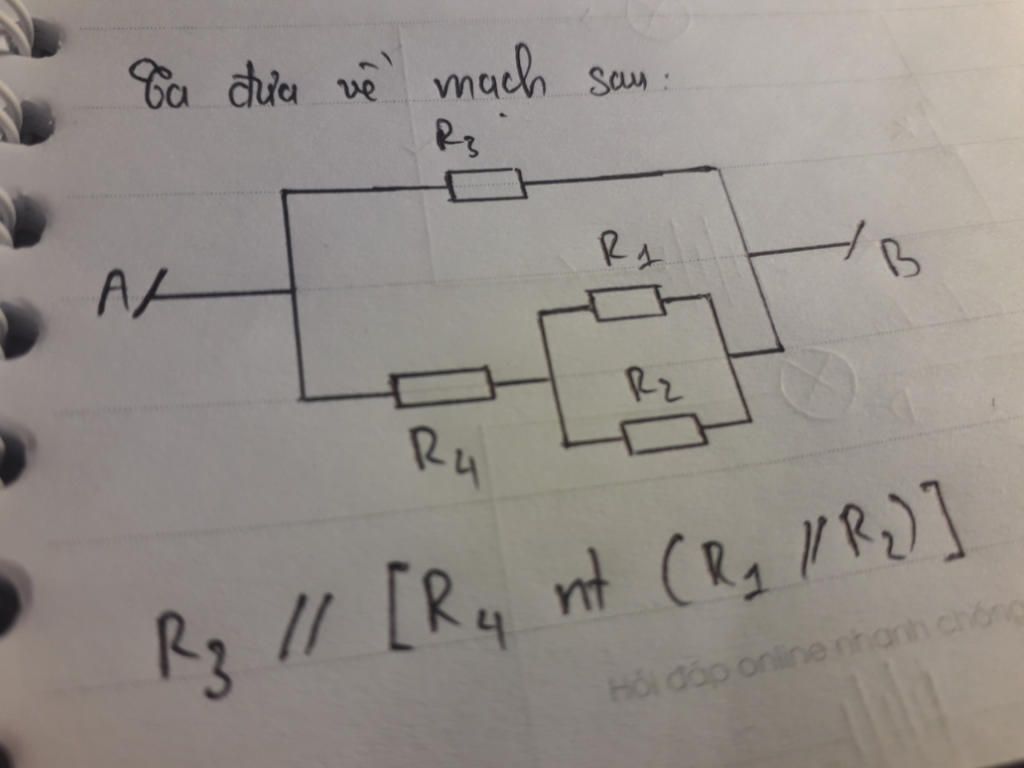 Ta đưa về mạch sau:
R3
R1
A
B
R2
R4
R3 // [R4 nt (R1 // R2)]
Hỏi đáp online nhanh chóng